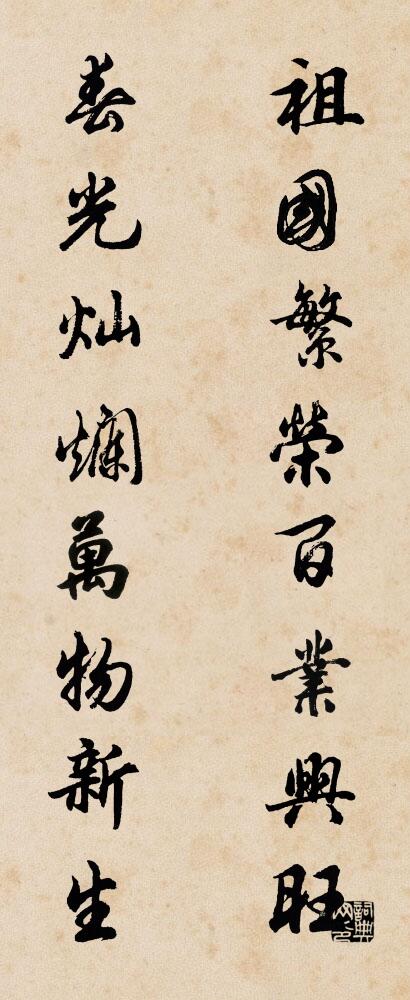 祖國繁榮百業興旺
春光灿爛萬物新生